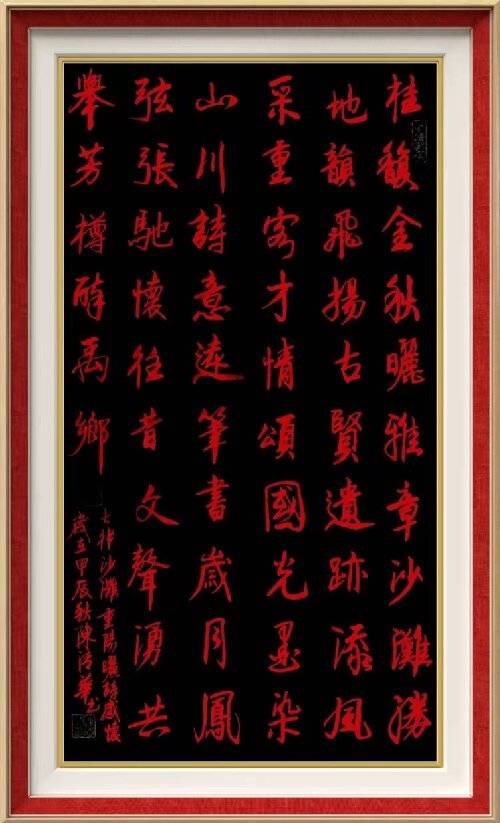 桂馥金秋曬雅章沙灘勝
地韻飛揚古賢遺跡添風
采重客才情頌國光墨染
山川詩意遠筆書歲月鳳
弦張馳懷往昔文聲湧共
舉芳樽醉禹鄉
七律沙灘重陽曬詩感懷
歲在甲辰秋陳華书